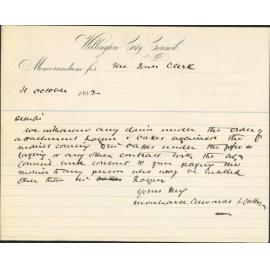 Wellington City Council.
Memorandum for The Town Clerk
31 October 1892
Dear Sir
We withdraw any claim under the order of
attachment Logan v Oakes against the
monies coming to Mr Oakes under the pipe
laying or any other contract with the City
Council and consent to your paying the
monies to any person who may be entitled
other than Mr Logan
yours truly
Edwards